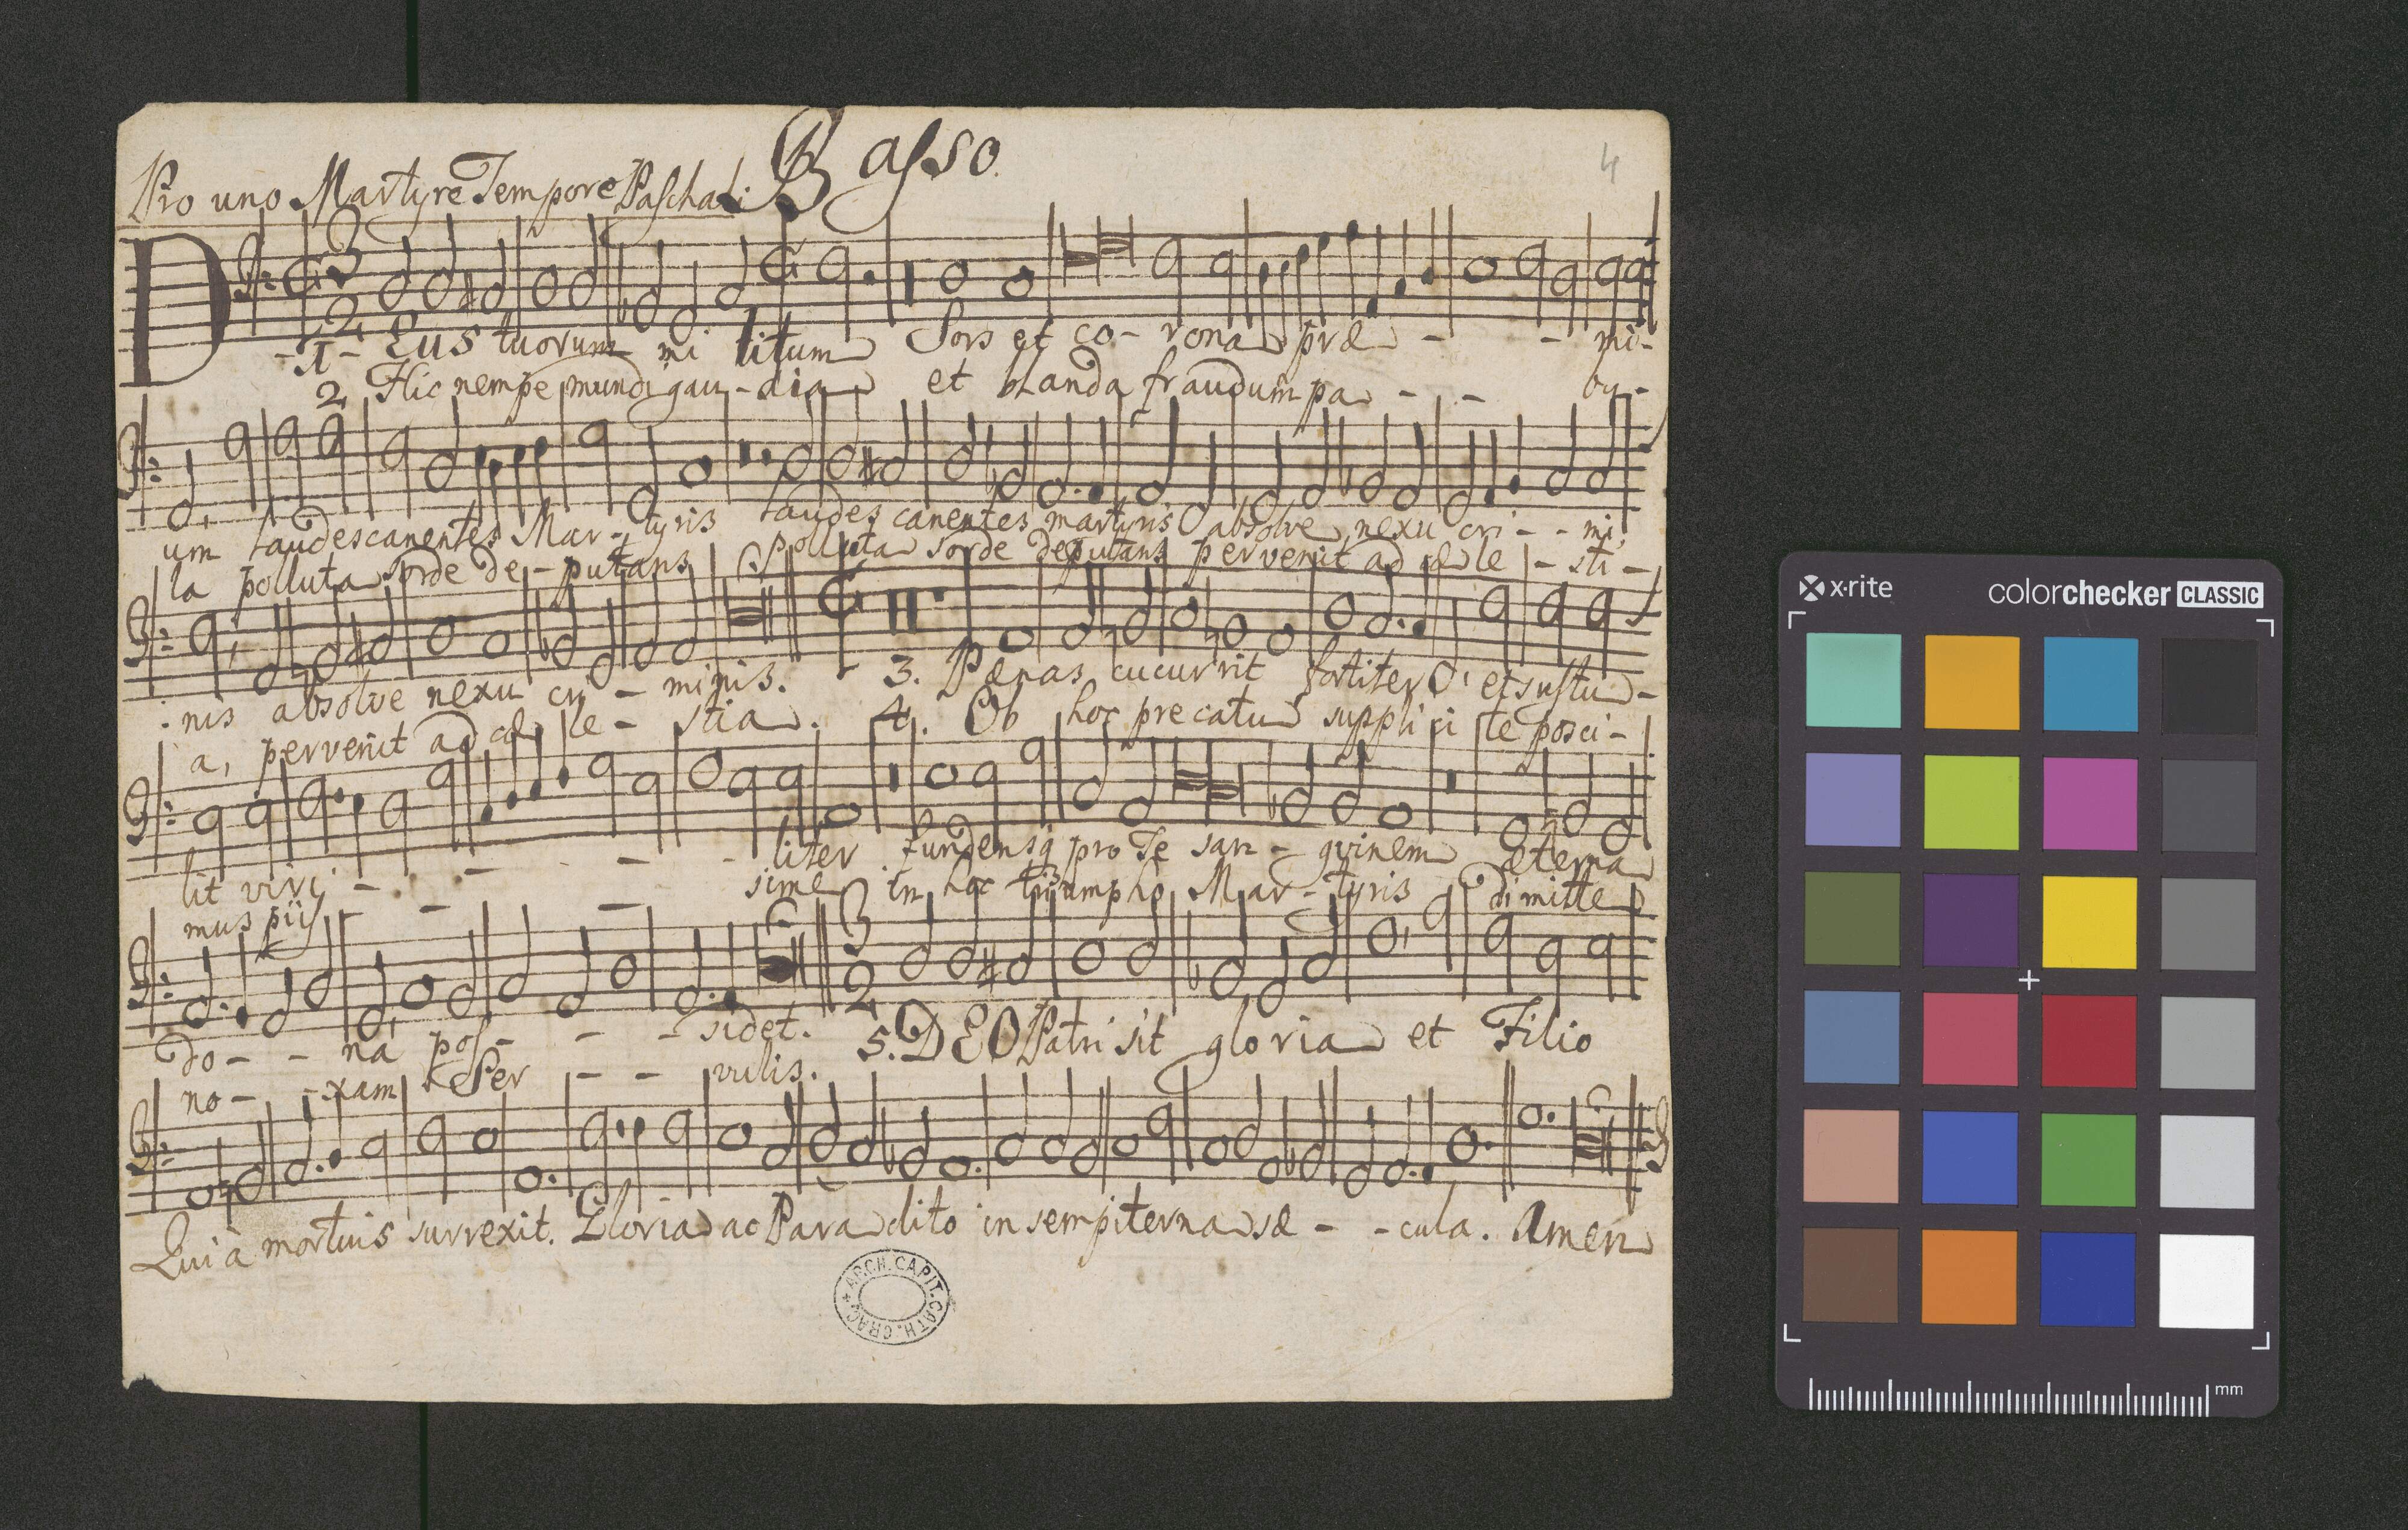 Basso.
4
Pro uno Martyre Tempore Paschali
D
-1- Eus tuorum mi litum Sors et co- rona præ - - mi-
2 Hic nempe mundi gau-dia et blanda fraudum pa - - bu-
um laudes canentes Mar- tyris laudes canentes martyris absolve nexu cri - - mi,
la polluta sorde de- putans polluta sorde deputans pervenit ad cæle - sti -
nis absolve nexu cri - minis. 3. Pœnas cucurrit fortiter et sustu -
a, pervenit ad cæ le - stia. 4. Ob hoc precatu supplici te posci-
lit viri - - - - liter fundensq pro Te san - gvinem æterna
mus pijs - - - sime in hoc triumpho Mar- tyris dimitte
do - - na pos - - - sidet. 5. DEO Patri sit gloria et Filio
no - - xam Ser - - vulis.
Qui à mortuis surrexit. Gloria ac Paraclito in sempiterna sæ - - cula. Amen
ARCH. CAPIT. CATH. CRAC.
x·rite
colorchecker CLASSIC
mm